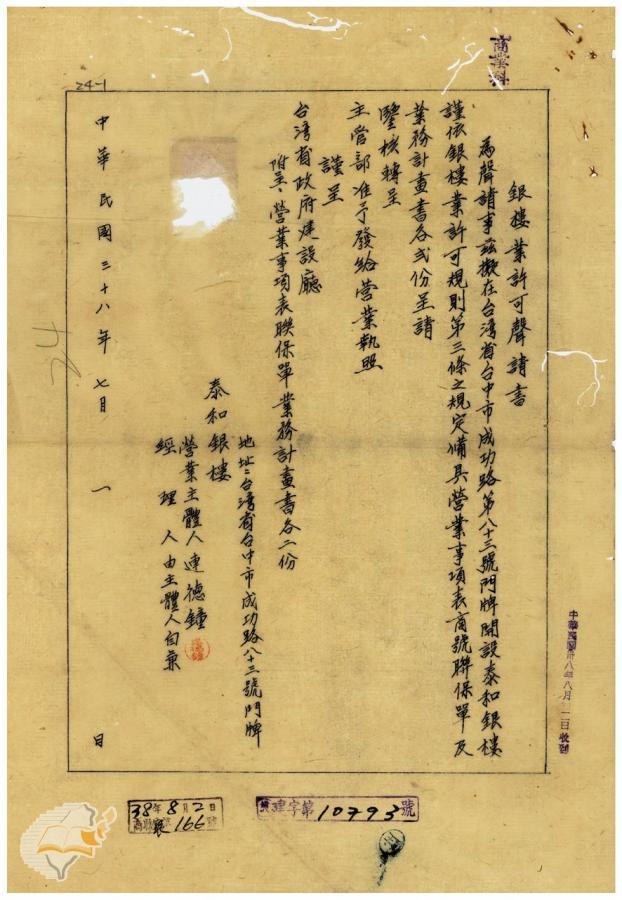 商業科
24-1
銀樓業許可聲請書
為聲請事茲擬在台灣省台中市成功路第八十三號門牌開設泰和銀樓
謹依銀樓業許可規則第三條之規定備具營業事項表商號聯保單及
業務計畫書各弍份呈請
鑒核轉呈
主管部准予發給營業執照
謹呈
台湾省政府建設廳
附呈:營業事項表聯保單業務計畫書各二份
地址:台湾省台中市成功路八十三號門牌
泰和銀樓
營業主體人連德鐘
經理人由主體人自兼
中華民國三十八年七月一日
中華民國卅八年八月二日收到
38年8月2日
166號
建字第10793號